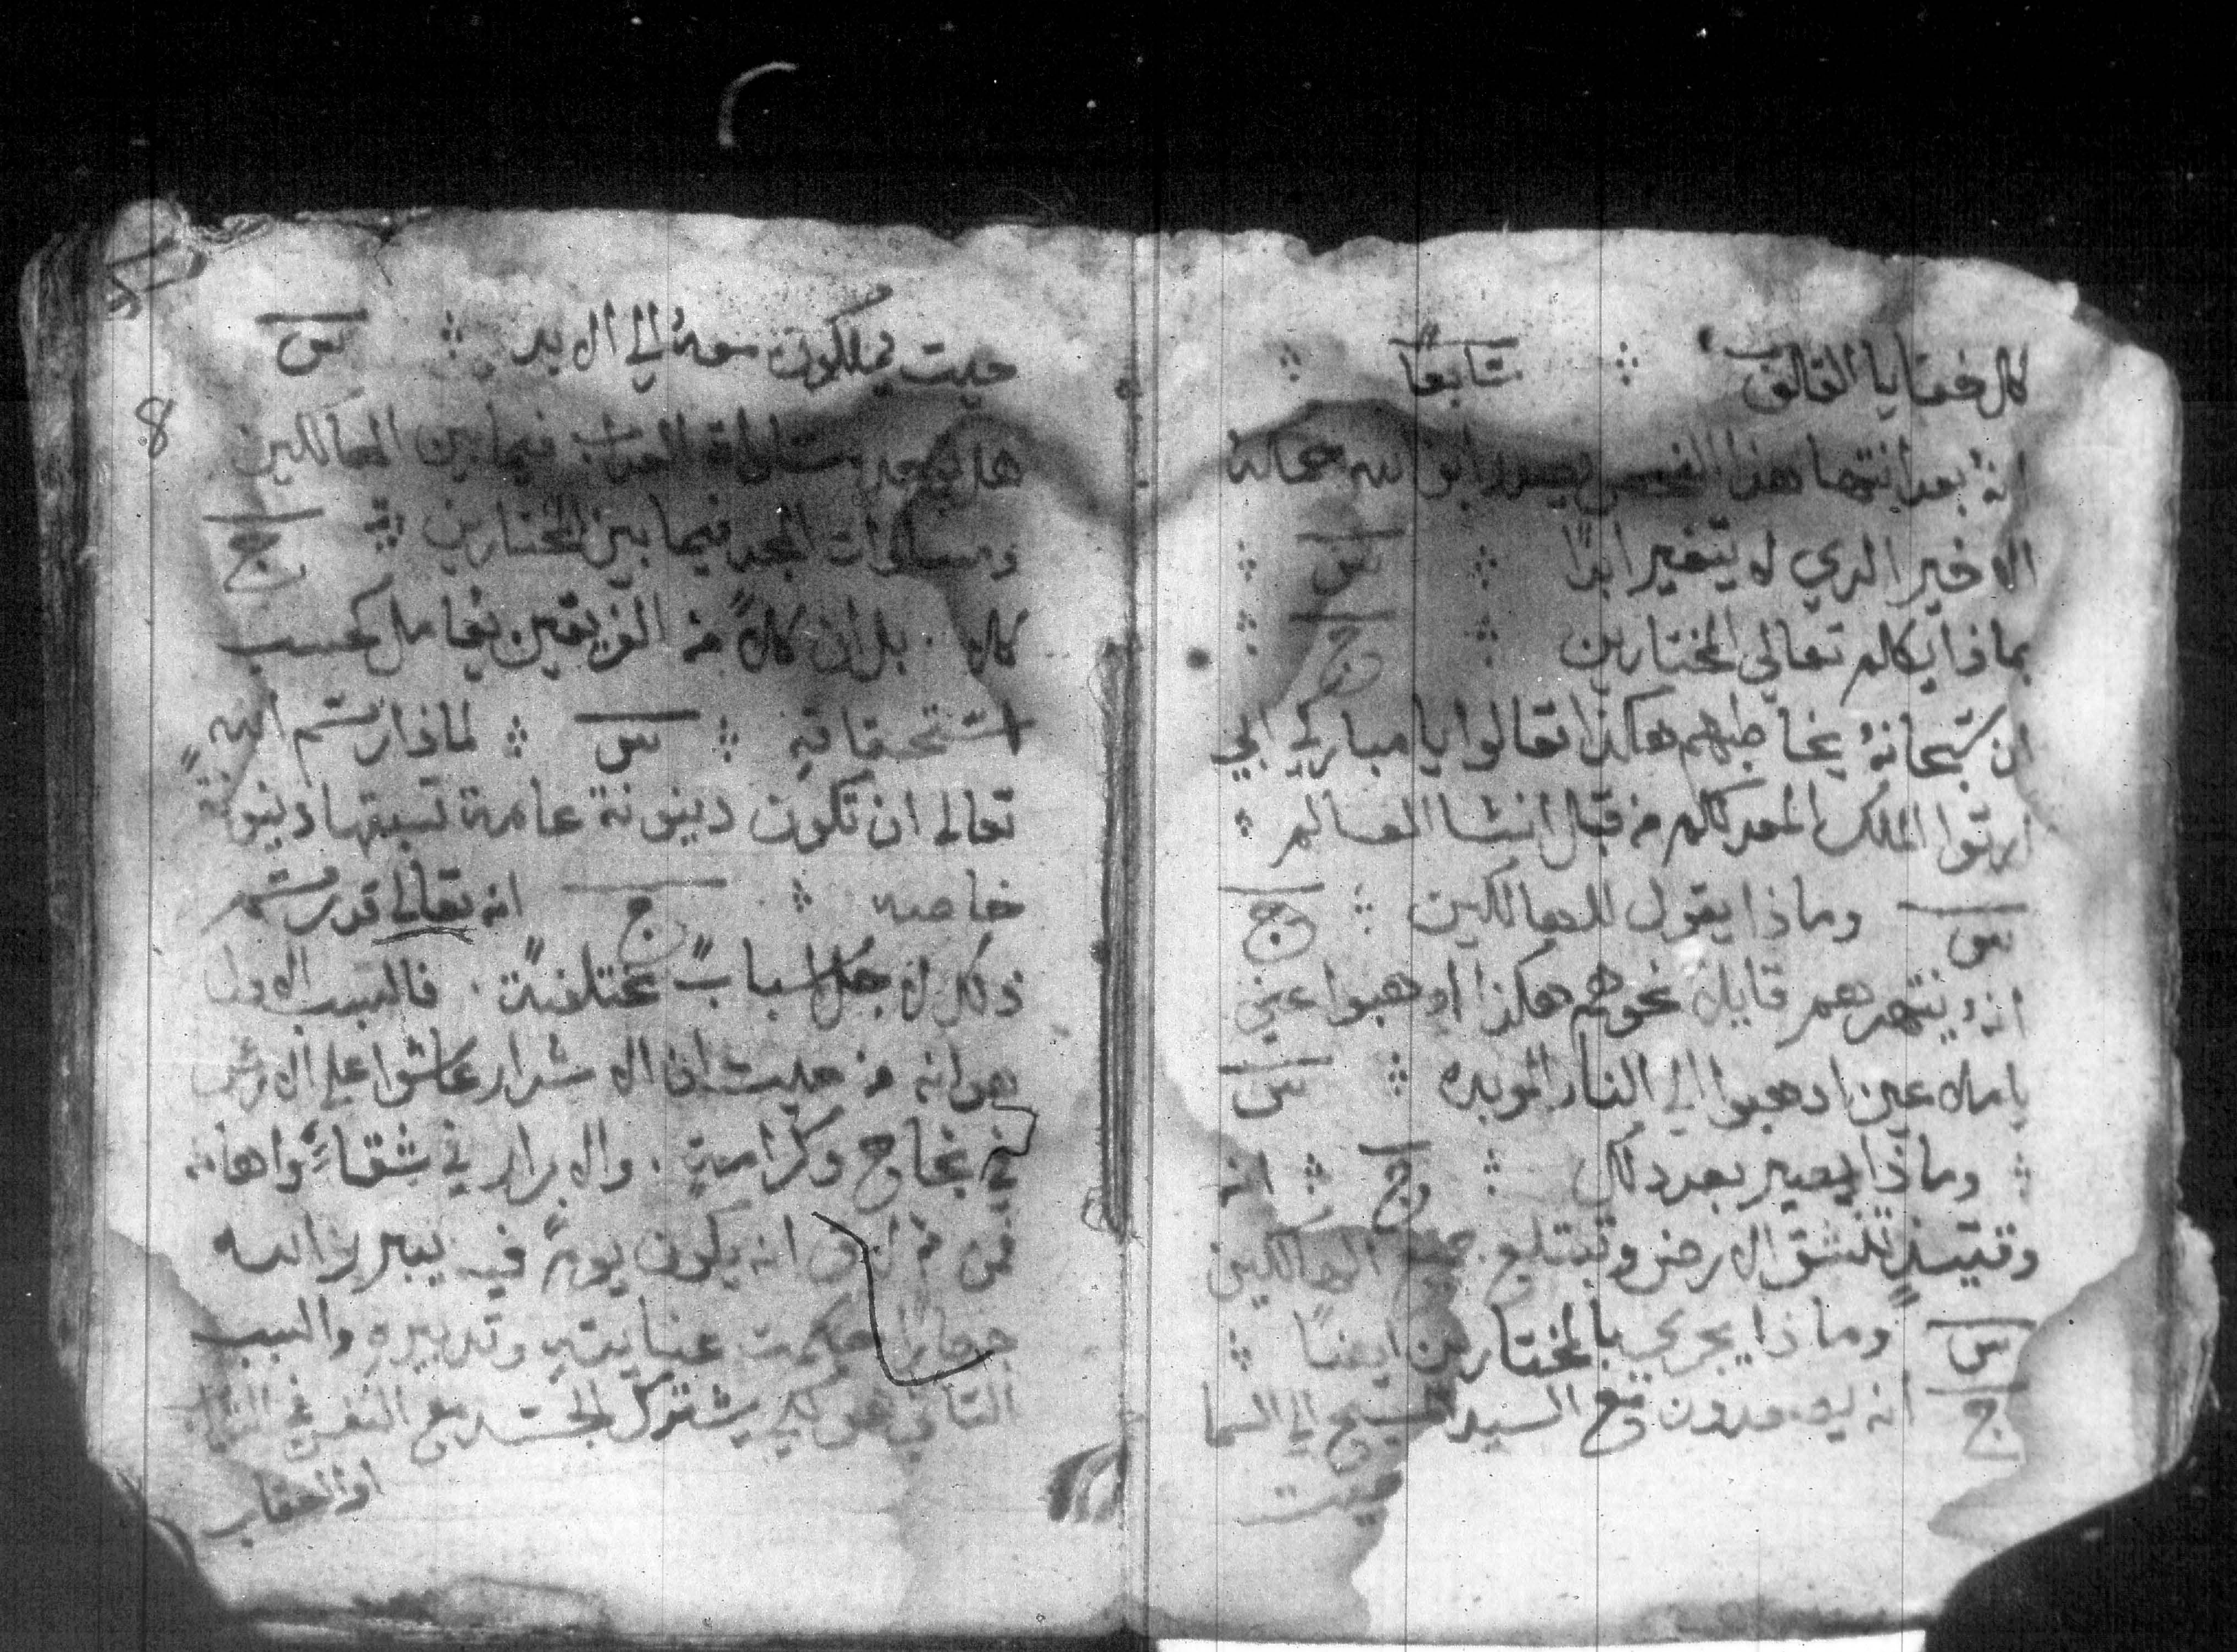 كل خفايا القلوب ⁘ سابعًا ⁘
انهُ بعد انتها هذا الفحص يصدر ابو الله حكمهُ
الاخير الدي لا يتغير ابدًا ⁘ س ⁘
بماذا يكلم تعالي المختارين ⁘ ج ⁘
ان سبحانهُ يخاطبهم هكذا تعالوا يا مباركي ابي
ارثوا الملك المعد لكم من قبل انشا العالم ⁘
س وماذا يقول للهالكين ⁘ ج
انهُ ينتهرهم قايلاً نحوهم هكذا ادهبوا عني
يا ملاعين ادهبوا الي النار الموبده ⁘ س
⁘ وماذا يصير بعد دلك ⁘ ج ⁘ انه
وقتيندٍ تنشق الارض وتبتلع جميع الهالكين
س وماذا يجري بالمختارين ايضًا ⁘
ج انه يصعدون مع السيد المسيح الي السما
حيت
حيت يملكون معهُ الي الابد ⁘ س
8
هل يوجد مساواة العداب فيما بين الهالكين
ومساوات المجد فيما بين المختارين ⁘ ج
كلا . بل ان كلاً من الفريقين يعامل كحسب
استحقاقهِ ⁘ س ⁘ لماذا رسم الله
تعالي ان تكون دينونة عامة تسبقها دينونة
خاصه ⁘ ج انه تعالي قد رسم
ذلك لاجل اسبابٍ مختلفةً . فالسبب الاول
هو انه من حيت ان الاشرار عاشوا علي الارض
في نجاح وكرامةٍ . والابرار في شقاءٍ واهانه
فمن ثم لزم انه يكون يومًا فيه يبرر الله
جهارًا حكمت عنايتهِ وتدبيرهِ والسبب
التاني هو لكي يشترك الجسد مع النفس في التواب
او العقاب